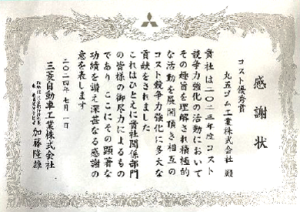 感謝状
コスト優秀賞
丸五ゴム工業株式会社 殿
貴社は二〇二三年度コスト
競争力強化の活動において
その趣旨を理解され積極的
な活動を展開頂き相互の
コスト競争力強化に多大な
貢献をされました
これはひとえに貴社関係部門
の皆様の御尽力によるもの
であり ここにその顕著な
功績を讃え深甚なる感謝の
意を表します
二〇二四年七月一日
三菱自動車工業株式会社
加藤隆雄